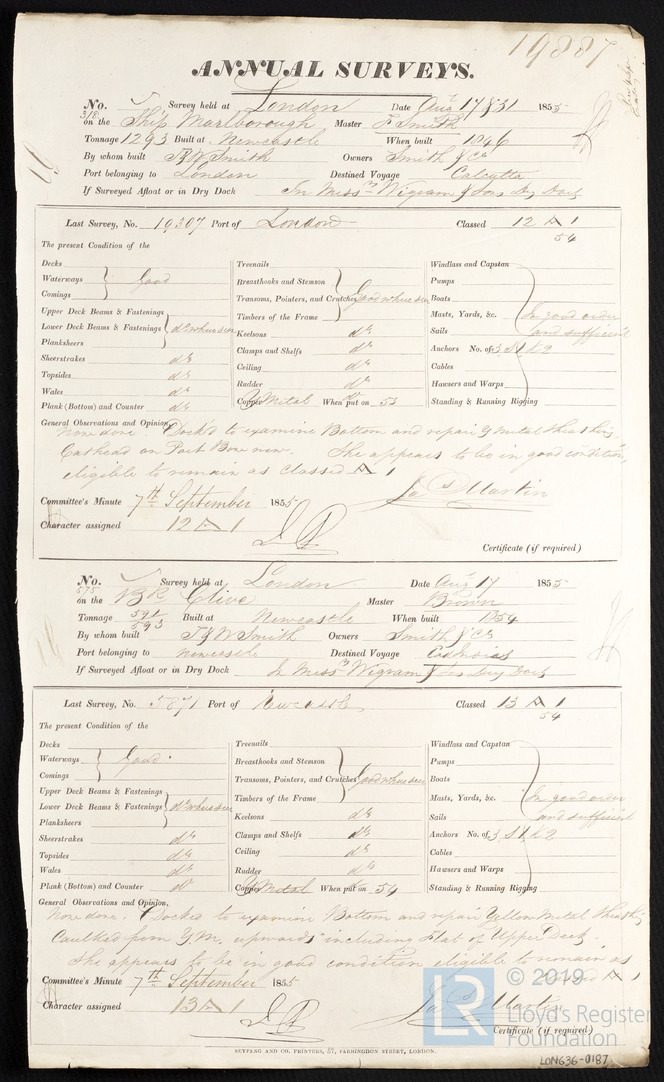 19887
ANNUAL SURVEYS.
No. 318 Survey held at London Date Augt 17 & 31 1855
on the Ship Marlborough Master F Smith
Tonnage 1293 Built at Newcastle When built 1846
By whom built T & W Smith Owners Smith & Co
Port belonging to London Destined Voyage Calcutta
If Surveyed Afloat or in Dry Dock In Messrs Wigram & Sons Dry Dock
Last Survey, No. 19307 Port of London Classed 12 A 1
54
The present Condition of the
Decks
Waterways Good
Comings
Upper Deck Beams & Fastenings
Lower Deck Beams & Fastenings do where seen
Planksheers
Sheerstrakes do
Topsides do
Wales do
Plank (Bottom) and Counter do
Treenails
Breasthooks and Stemson
Transoms, Pointers, and Crutches Good where seen
Timbers of the Frame
Keelsons do
Clamps and Shelfs do
Ceiling do
Rudder do
Copper Y Metal When put on 53
Windlass and Capstan
Pumps
Boats
Masts, Yards, &c. In good order
Sails and sufficient
Anchors No. of 3, S 1, K 2
Cables
Hawsers and Warps
Standing & Running Rigging
General Observations and Opinion,
Now done. Dock'd to examine Bottom and repair Y Metal Sheathg,
Cathead on Port Bow new. She appears to be in good condition,
eligible to remain as classed A 1
Jas Martin
Committee's Minute 7th September 1855
Character assigned 12 A 1
Certificate (if required)
No. 575 Survey held at London Date Augt 17 1855
on the Bk Clive Master Brown
Tonnage 591/593 Built at Newcastle When built 1854
By whom built T & W Smith Owners Smith & Co
Port belonging to Newcastle Destined Voyage Et Indies
If Surveyed Afloat or in Dry Dock In Messrs Wigram & Sons Dry Dock
Last Survey, No. Port of Newcastle Classed 13 A 1
54
The present Condition of the
Decks
Waterways Good
Comings
Upper Deck Beams & Fastenings
Lower Deck Beams & Fastenings do where seen
Planksheers
Sheerstrakes do
Topsides do
Wales do
Plank (Bottom) and Counter do
Treenails
Breasthooks and Stemson
Transoms, Pointers, and Crutches Good where seen
Timbers of the Frame
Keelsons do
Clamps and Shelfs do
Ceiling do
Rudder do
Copper Y Metal When put on 54
Windlass and Capstan
Pumps
Boats
Masts, Yards, &c. In good order
Sails and sufficient
Anchors No. of 3, S 1, K 2
Cables
Hawsers and Warps
Standing & Running Rigging
General Observations and Opinion,
Now done. Docked to examine Bottom and repair Yellow Metal Sheathg
Caulked from Y.M. upwards including Flat of Upper Deck.
She appears to be in good condition eligible to remain as
A 1
Committee's Minute 7th September 1855
Character assigned 13 A 1
Jas Martin
Certificate (if required)
SEYFANG AND CO. PRINTERS, 57, FARRINGDON STREET, LONDON.
LR
© 2019
Lloyd's Register
Foundation
LON636-0187